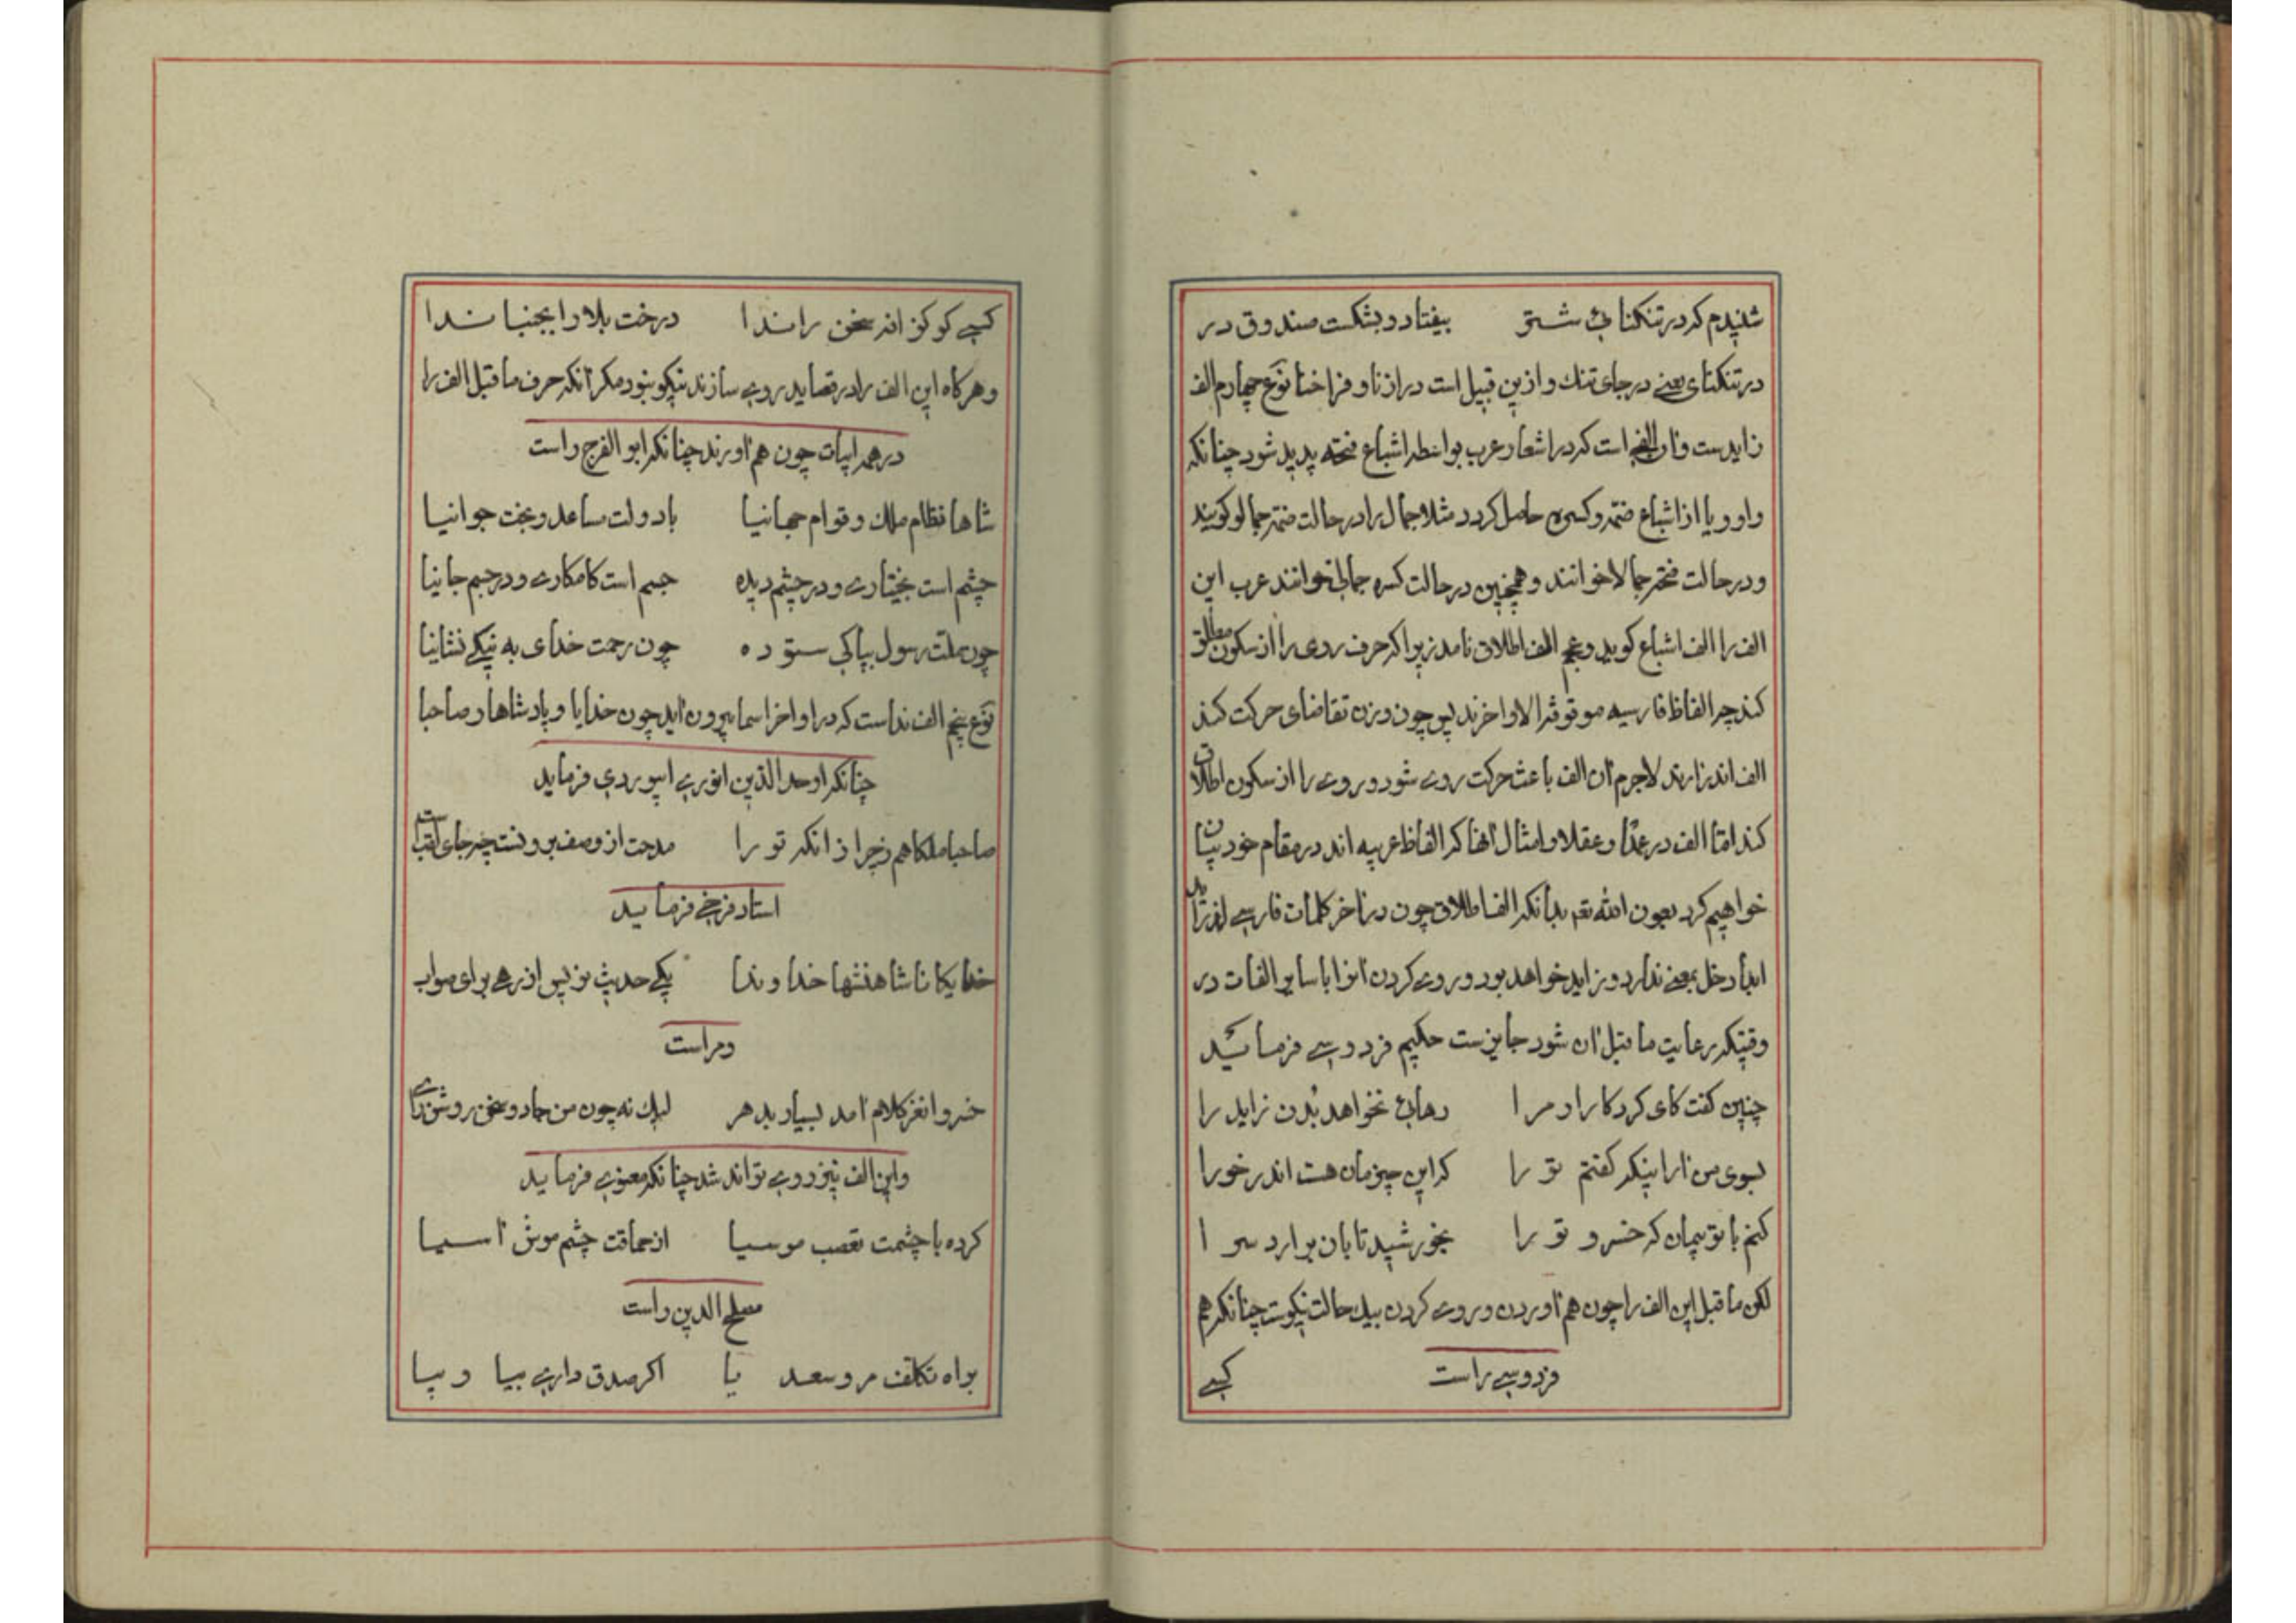 شنیدم که در تنکنائی شتر بیفتاد و بشکست صندوق در
در تنکنای یعنے در جای تنك و ازین قبیل است درازنا و فراخنا نوع چهارم الف
زایدست و ان الفی است که در اشعار عرب بواسطه اشباع فتحه پدید شود چنانکه
واو و یا از اشباع ضمه و کسره حاصل کردد مثلا جمال را در حالت ضمه جمالو کویند
و در حالت فتحه جمالا خوانند و همچنین در حالت کسره جمالی خوانند عرب این
الف را الف اشباع کوید و عجم الف اطلاق نامد زیرا که حرف روی را از سکون مطلق
کند چه الفاظ فارسیه موقوفه الاواخرند پس چون وزن تقاضای حرکت کند
الف اندر ارند لاجرم آن الف باعث حرکت روے شود و روے را از سکون اطلاق
کند امّا الف در عمدًا و عقلا و امثال آنها که الفاظ عربیه اند در مقام خود بیان
خواهیم کرد بعون الله تعم بدانکه الف اطلاق چون در آخر کلمات فارسے افزاید
ابدا دخل بمعنے ندارد و زاید خواهد بود و روے کردن انرا با سایر الفات در
وقتیکه رعایت ما قبل آن شود جایزست حکیم فردوسے فرمائید
چنین کفت کای کردکار ار مرا رهائی نخواهد بُدن زاید را
بسوی من ار اینکه کفتم تو را که این چیزمان هست اندر خورا
کنم با تو پیمان که خسرو تو را بخورشید تابان برارد سرا
لکن ما قبل این الف را چون هم آوردن و روے کردن بیك حالت نیکوست چنانکه هم
فردوسے راست کسے
کسے کو کزافه سخن راندا درخت بلا را بجنباندا
و هر کاه این الف را در قصاید روے سازند نیکو بنود مکر آنکه حرف ما قبل الف را
در همه ابیات چون هم آورند چنانکه ابو الفرج راست
شاها نظام ملك و قوام جهانیا با دولت مساعد و بخت جوانیا
چشم است بختیارے و در چشم دیده جسم است کامکارے و در جسم جانیا
چون ملت رسول بپاکی ستوده چون رحمت خدای به نیکے نشانیا
نوع پنجم الف نداست که در اواخر اسما بیرون آید چون خدایا و پادشاها و صاحبا
چنانکه اوحد الدّین انورے ابیوردی فرماید
صاحبا ملکا هم زچرا زانکه تو را مدحت از وصف برونست چه جای لقب است
استاد فرخے فرماید
خدایکانا شاهنشها خداوندا یکے حدیث نیوش از رهے برای صواب
و مراست
خسروا نغز کلام آمد بسیار بدهر لیك نه چون من جادو سخن روشن رای
و این الف نیز روے تواند شد چنانکه معنوی فرماید
کرده با چشمت تعصب موسیا از حماقت چشم موش آسیا
مصلح الدین راست
براه تکلف مرو سعدیا اکر صدق دارے بیا و بیا